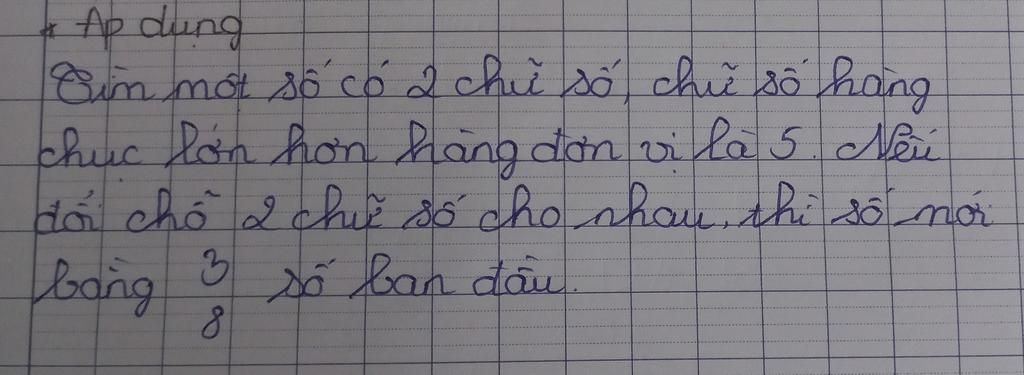 * Áp dụng
Tìm một số có 2 chữ số, chữ số hàng
chục lớn hơn hàng đơn vị là 5. Nếu
đổi chỗ 2 chữ số cho nhau, thì số mới
bằng 3/8 số ban đầu.